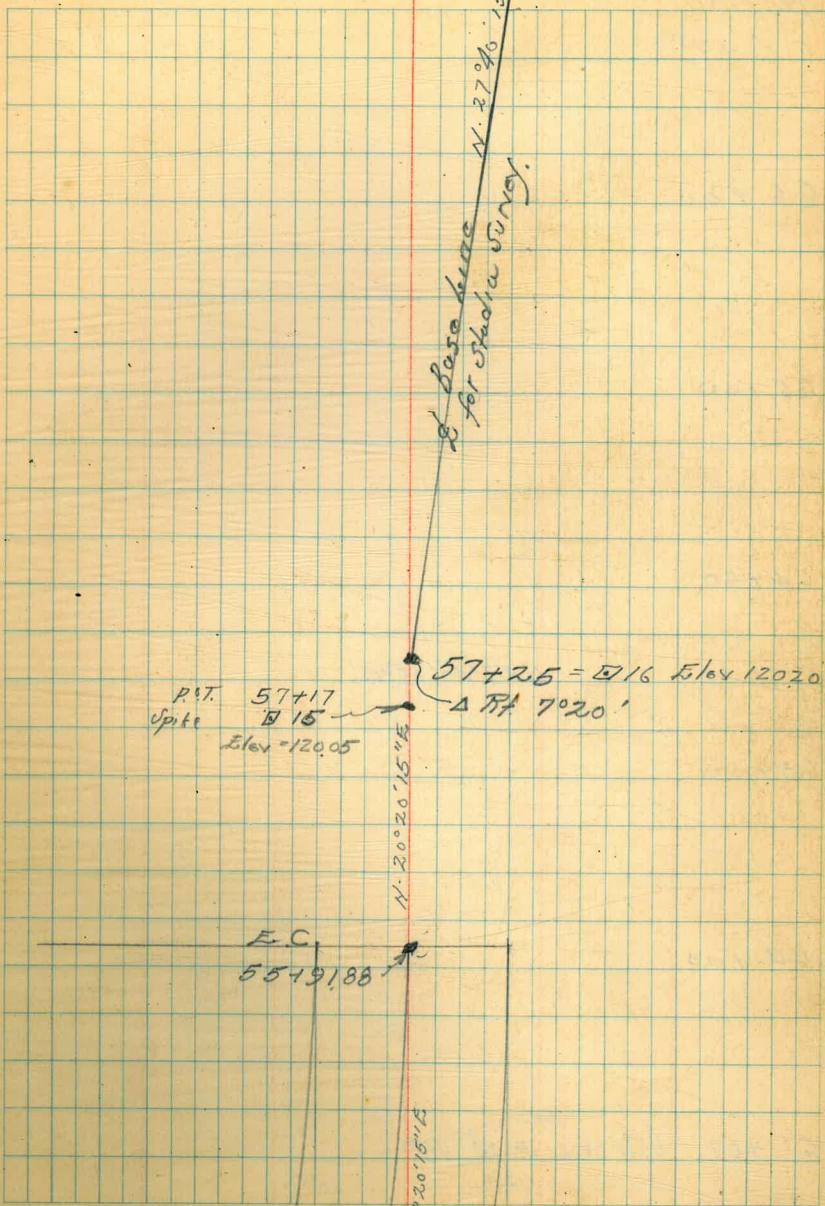 N. 27°40'15
℄ Base Line
for Stadia Survey.
57+25 = ⊡16 Elev 120.20
Δ Rt 7°20'
P.O.T. 57+17
Spike ⊡ 15
Elev = 120.05
N. 20°20'15"E
E.C.
55+91.88
°20'15"E